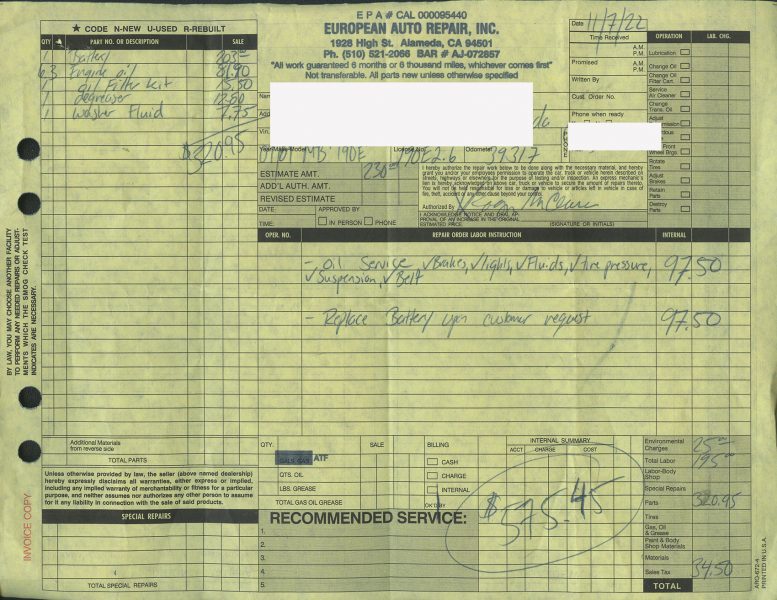 E P A # CAL 000095440
EUROPEAN AUTO REPAIR, INC.
1928 High St. Alameda, CA 94501
Ph. (510) 521-2066 BAR # AJ-072857
"All work guaranteed 6 months or 6 thousand miles, whichever comes first"
Not transferable. All parts new unless otherwise specified
★ CODE N-NEW U-USED R-REBUILT
QTY PART NO. OR DESCRIPTION SALE
1 Battery
6.3 Engine oil
1 oil Filter kit 15.50
1 degreaser 12.50
1 washer Fluid 7.75
$320.95
Date 11/7/22
Time Received A.M. P.M.
Promised A.M. P.M.
Written By
Cust. Order No.
Phone when ready
PHONE
OPERATION LAB. CHG.
Lubrication
Change Oil
Change Oil Filter Cart.
Service Air Cleaner
Change Trans. Oil
Adjust
Front Wheel Brgs.
Rotate Tires
Adjust Brakes
Retain Parts
Destroy Parts
Name
Vin.
Year/Make/Model License No. Odometer
MB 190E 2.6 39317
ESTIMATE AMT. 230
ADD'L AUTH. AMT.
REVISED ESTIMATE
DATE: APPROVED BY
TIME: IN PERSON PHONE
I hereby authorize the repair work below to be done along with the necessary material, and hereby
grant you and/or your employees permission to operate the car, truck or vehicle herein described on
streets, highways or elsewhere for the purpose of testing and/or inspection. An express mechanic's
lien is hereby acknowledged on above car, truck or vehicle to secure the amount of repairs thereto.
You will not be held responsible for loss or damage to vehicle or articles left in vehicle in case of
fire, theft, accident or any other cause beyond your control.
Authorized By
I ACKNOWLEDGE NOTICE AND ORAL AP-
PROVAL OF AN INCREASE IN THE ORIGINAL
ESTIMATED PRICE. (SIGNATURE OR INITIALS)
OPER. NO. REPAIR ORDER LABOR INSTRUCTION INTERNAL
- Oil Service ✓Brakes, ✓lights, ✓Fluids, ✓tire pressure, 97.50
✓Suspension, ✓Belt
- Replace Battery upon customer request 97.50
BY LAW, YOU MAY CHOOSE ANOTHER FACILITY
TO PERFORM ANY NEEDED REPAIRS OR ADJUST-
MENTS WHICH THE SMOG CHECK TEST
INDICATES ARE NECESSARY.
INVOICE COPY
Additional Materials
from reverse side
TOTAL PARTS
Unless otherwise provided by law, the seller (above named dealership)
hereby expressly disclaims all warranties, either express or implied,
including any implied warranty of merchantability or fitness for a particular
purpose, and neither assumes nor authorizes any other person to assume
for it any liability in connection with the sale of said products.
SPECIAL REPAIRS
TOTAL SPECIAL REPAIRS
QTY. SALE
GALS. GAS ATF
QTS. OIL
LBS. GREASE
TOTAL GAS OIL GREASE
BILLING
CASH
CHARGE
INTERNAL
OK'D BY
INTERNAL SUMMARY
ACCT CHARGE COST
$575.45
RECOMMENDED SERVICE:
1.
2.
3.
4.
5.
Environmental Charges 25.00
Total Labor 195.00
Labor-Body Shop
Special Repairs
Parts 320.95
Tires
Gas, Oil & Grease
Paint & Body Shop Materials
Materials
Sales Tax 34.50
TOTAL
ARO-672-4
PRINTED IN U.S.A.